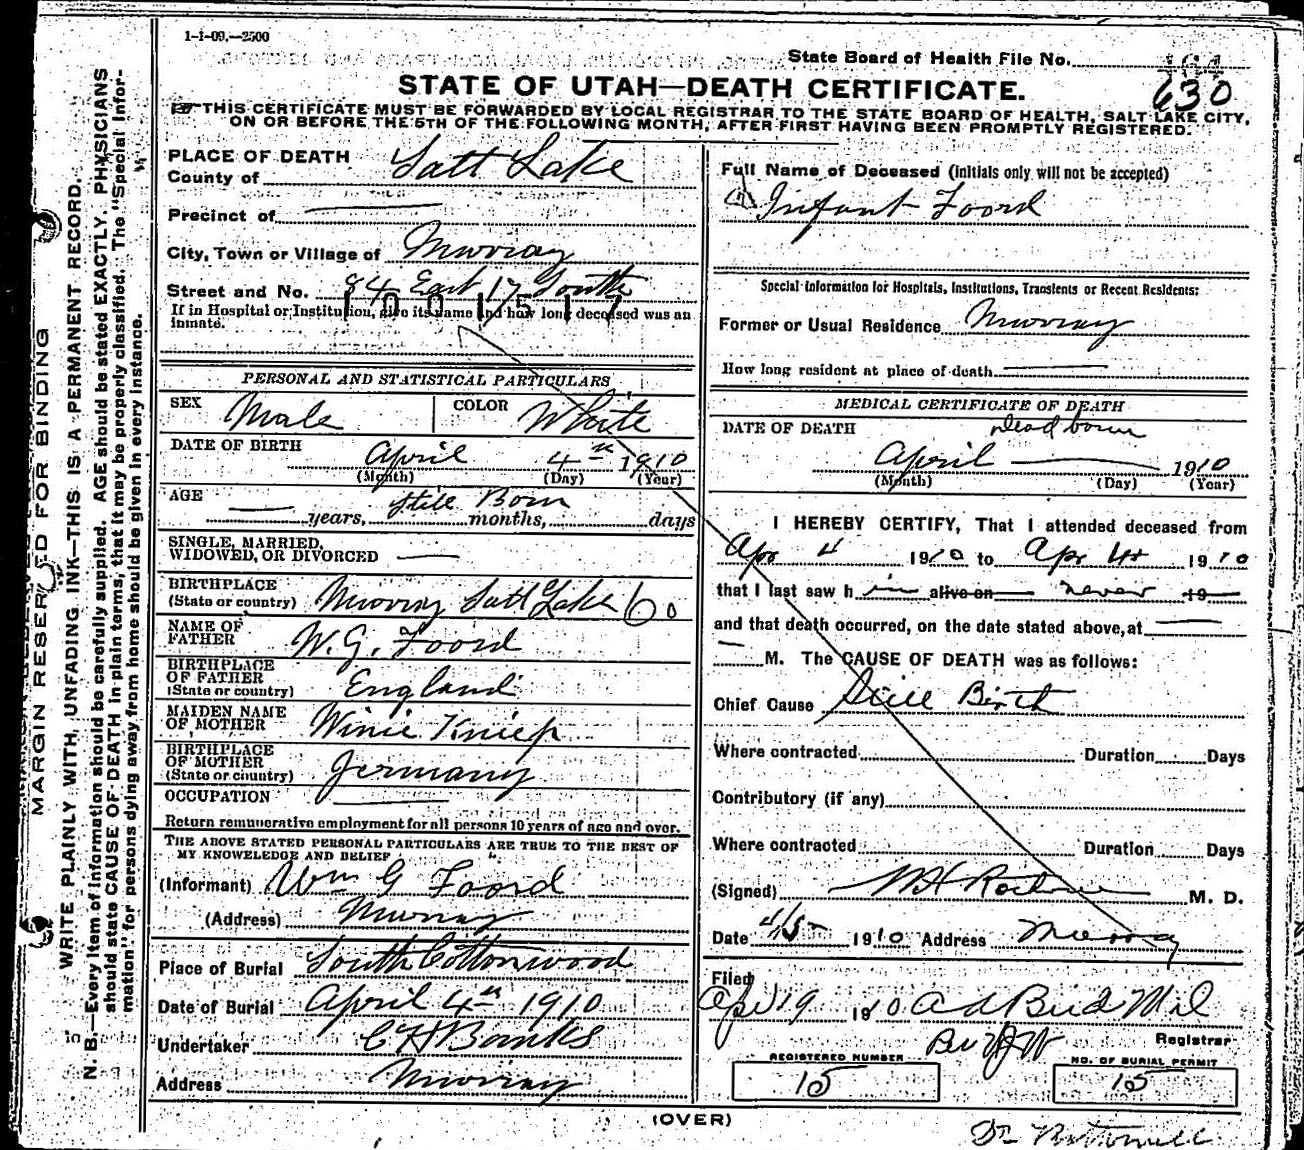 1-1-09.—2500
State Board of Health File No.
630
STATE OF UTAH—DEATH CERTIFICATE.
☞ THIS CERTIFICATE MUST BE FORWARDED BY LOCAL REGISTRAR TO THE STATE BOARD OF HEALTH, SALT LAKE CITY,
ON OR BEFORE THE 5TH OF THE FOLLOWING MONTH, AFTER FIRST HAVING BEEN PROMPTLY REGISTERED.
MARGIN RESERVED FOR BINDING
WRITE PLAINLY WITH UNFADING INK—THIS IS A PERMANENT RECORD.
N. B.—Every item of information should be carefully supplied. AGE should be stated EXACTLY. PHYSICIANS
should state CAUSE OF DEATH in plain terms, that it may be properly classified. The "Special Infor-
mation" for persons dying away from home should be given in every instance.
PLACE OF DEATH
County of Salt Lake
Precinct of
City, Town or Village of Murray
Street and No. 84 East 17 South
1001517
If in Hospital or Institution, give its name and how long deceased was an
inmate.
PERSONAL AND STATISTICAL PARTICULARS
SEX Male COLOR White
DATE OF BIRTH April 4th 1910
(Month) (Day) (Year)
AGE Still Born
years, months, days
SINGLE, MARRIED,
WIDOWED, OR DIVORCED
BIRTHPLACE
(State or country) Murray Salt Lake Co
NAME OF
FATHER W. G. Foord
BIRTHPLACE
OF FATHER
(State or country) England
MAIDEN NAME
OF MOTHER Winie Kniep
BIRTHPLACE
OF MOTHER
(State or country) Germany
OCCUPATION
Return remunerative employment for all persons 10 years of age and over.
THE ABOVE STATED PERSONAL PARTICULARS ARE TRUE TO THE BEST OF
MY KNOWELEDGE AND BELIEF
(Informant) Wm G Foord
(Address) Murray
Place of Burial South Cottonwood
Date of Burial April 4th 1910
Undertaker Banks
Address Murray
Full Name of Deceased (Initials only will not be accepted)
Infant Foord
Special Information for Hospitals, Institutions, Transients or Recent Residents:
Former or Usual Residence Murray
How long resident at place of death
MEDICAL CERTIFICATE OF DEATH
DATE OF DEATH Dead born
April 1910
(Month) (Day) (Year)
I HEREBY CERTIFY, That I attended deceased from
Apr 4 1910 to Apr 4th 1910
that I last saw him alive on never 19
and that death occurred, on the date stated above, at
M. The CAUSE OF DEATH was as follows:
Chief Cause Still Birth
Where contracted Duration Days
Contributory (if any)
Where contracted Duration Days
(Signed) M. D.
Date 4/5 1910 Address Murray
Filed
Apr 19 1910
Registrar
REGISTERED NUMBER NO. OF BURIAL PERMIT
15 15
(OVER)
Dr